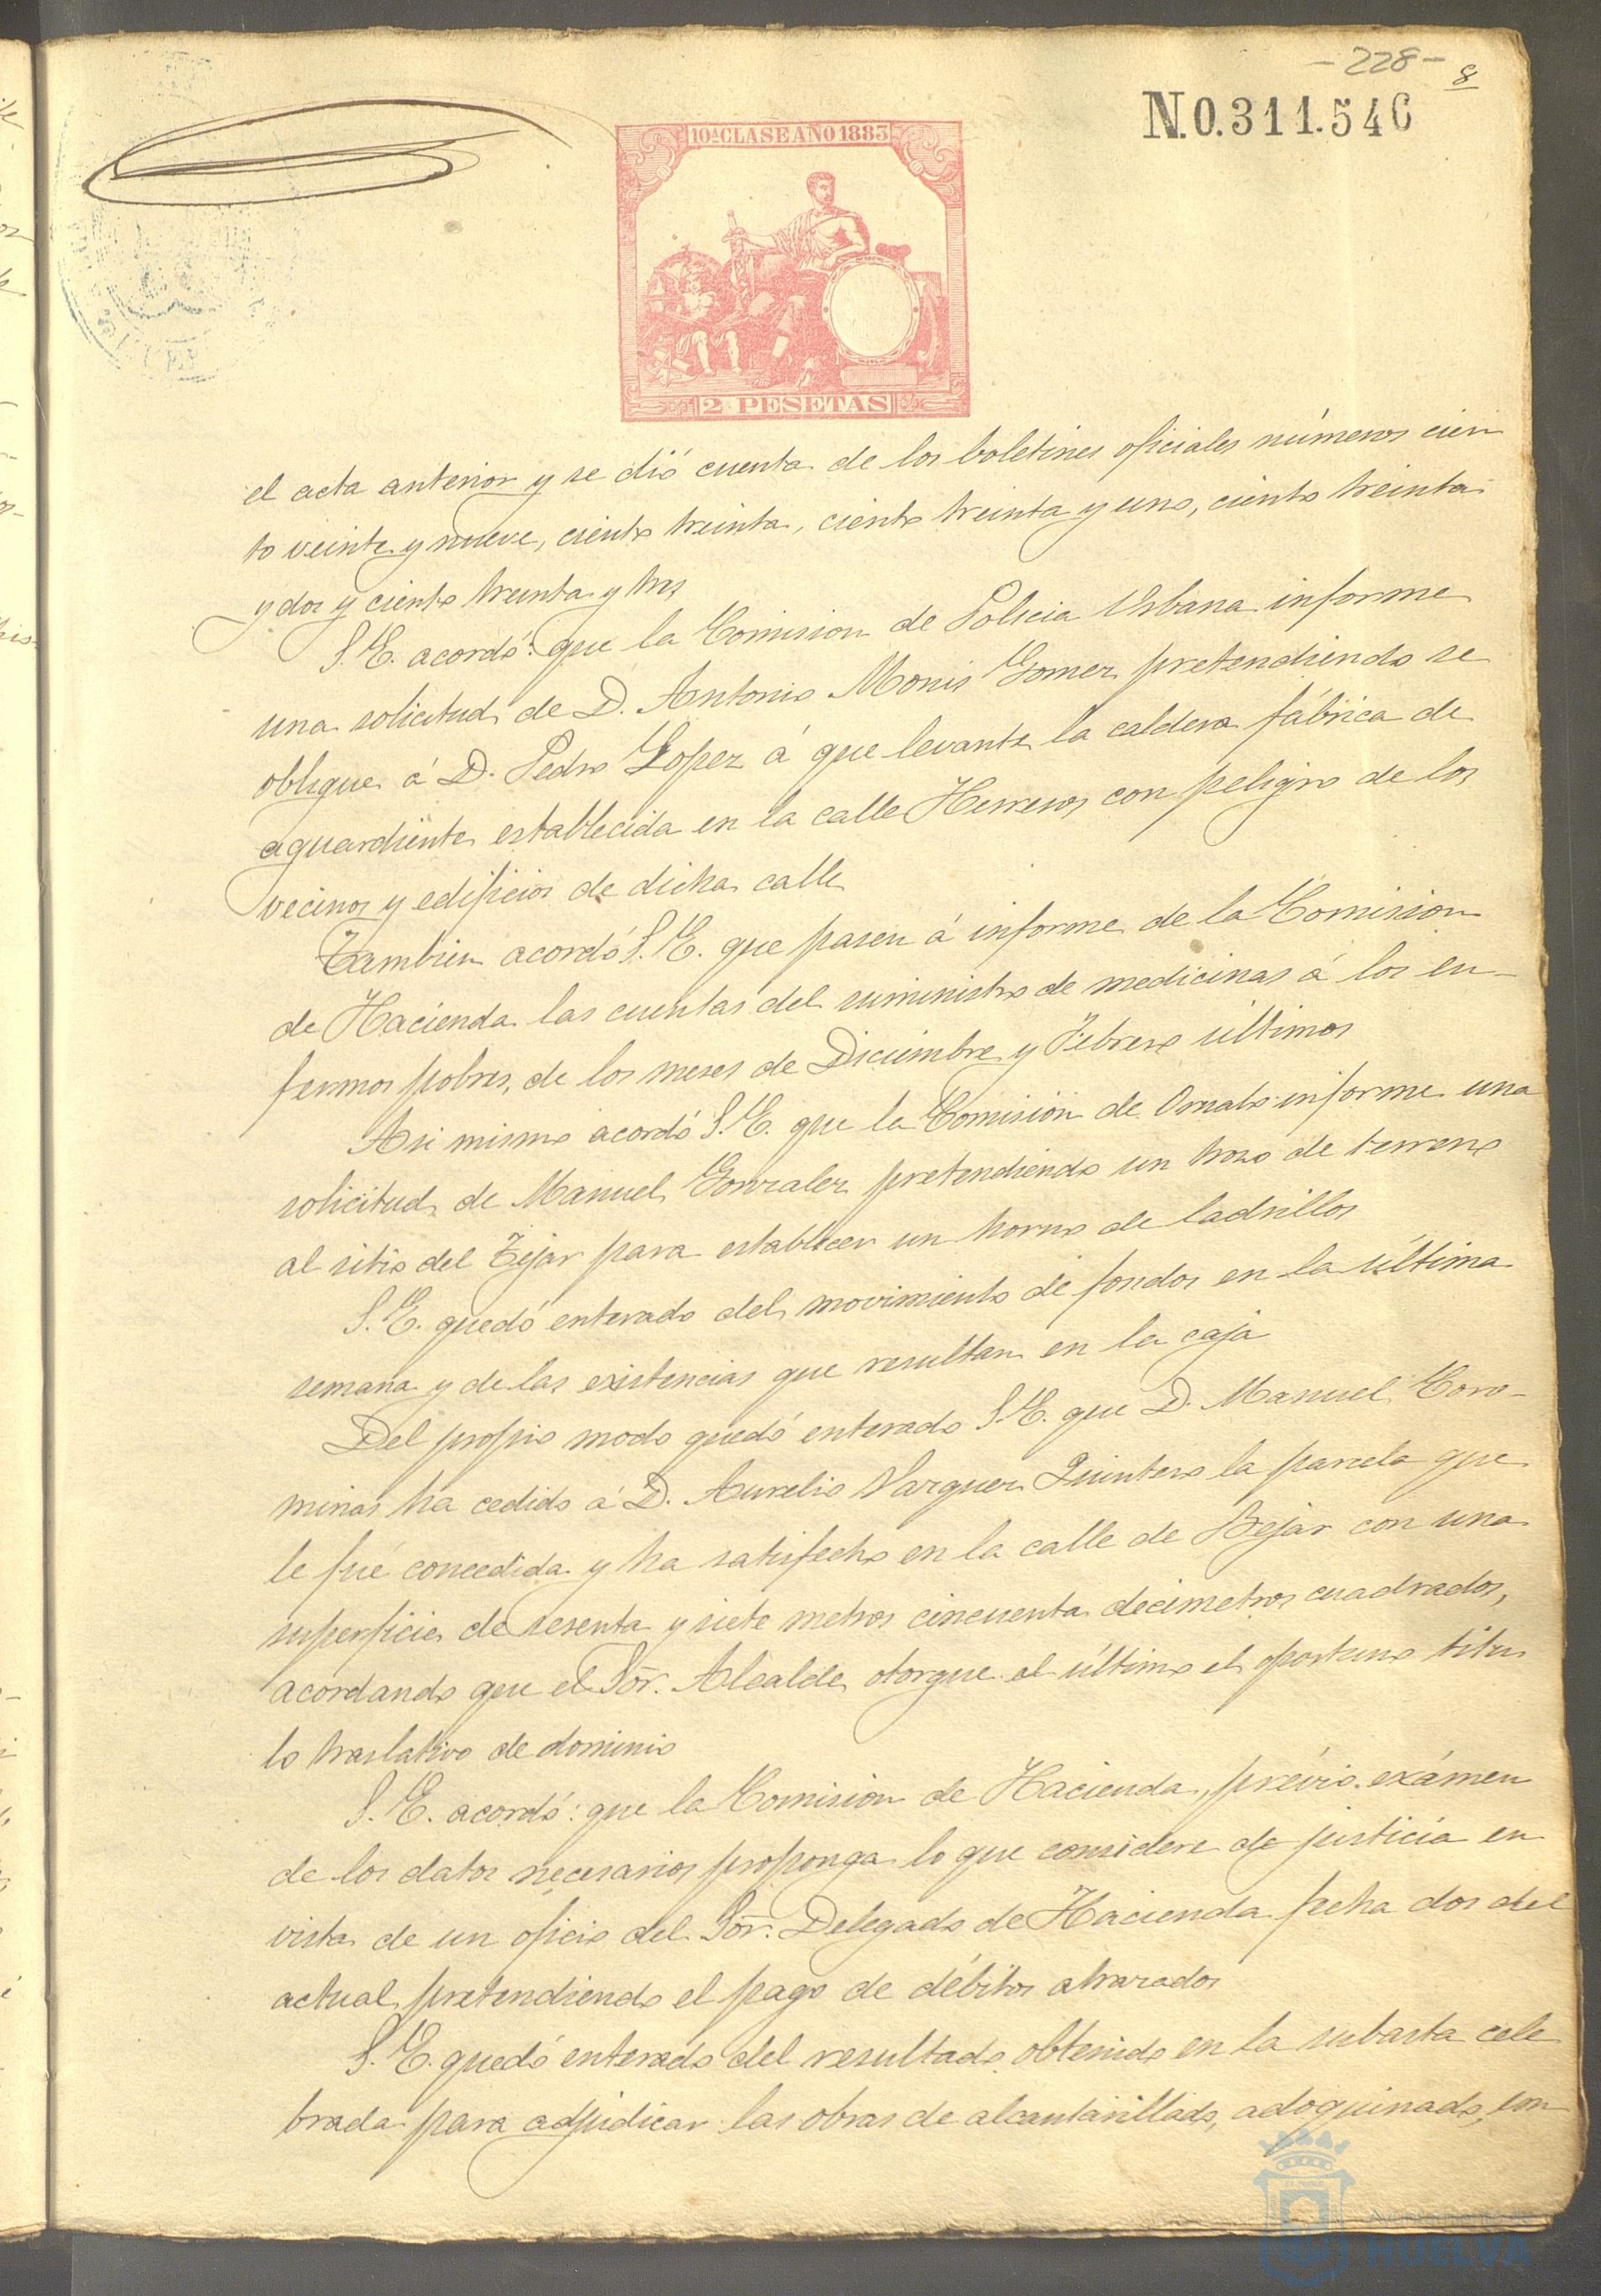 - 228 -
8
N.0.311.546
10ª CLASE AÑO 1883
2 PESETAS
el acta anterior y se dió cuenta de los boletines oficiales números cien
to veinte y nueve, ciento treinta, ciento treinta y uno, ciento treinta
y dos y ciento treinta y tres
S. E. acordó: que la Comision de Policia Urbana informe
una solicitud de D. Antonio Monis Gomez pretendiendo se
obligue á D. Pedro Lopez á que levante la caldera fábrica de
aguardiente establecida en la calle Herreros con peligro de los
vecinos y edificios de dicha calle
Tambien acordó S. E. que pasen á informe de la Comision
de Hacienda las cuentas del suministro de medicinas á los en-
fermos pobres, de los meses de Diciembre y Febrero últimos
Asi mismo acordó S. E. que la Comision de Ornato informe una
solicitud de Manuel Gonzalez pretendiendo un trozo de terreno
al sitio del Tejar para establecer un horno de ladrillos
S. E. quedó enterado del movimiento de fondos en la última
semana y de las existencias que resultan en la caja
Del propio modo quedó enterado S. E. que D. Manuel Coro-
minas ha cedido á D. Aurelio Vazquez Quintero la parcela que
le fué concedida y ha satisfecho en la calle de Bejar con una
superficie de sesenta y siete metros cincuenta decimetros cuadrados,
acordando que el Sõr. Alcalde otorgue al último el oportuno titu
lo traslativo de dominio
S. E. acordó: que la Comision de Hacienda, prévio exámen
de los datos necesarios proponga lo que considere de justicia en
vista de un oficio del Sõr. Delegado de Hacienda fecha dos del
actual pretendiendo el pago de débitos atrazados
S. E. quedó enterado del resultado obtenido en la subasta cele
brada para adjudicar las obras de alcantarillado, adoquinado, em
Ayuntamiento de
HUELVA